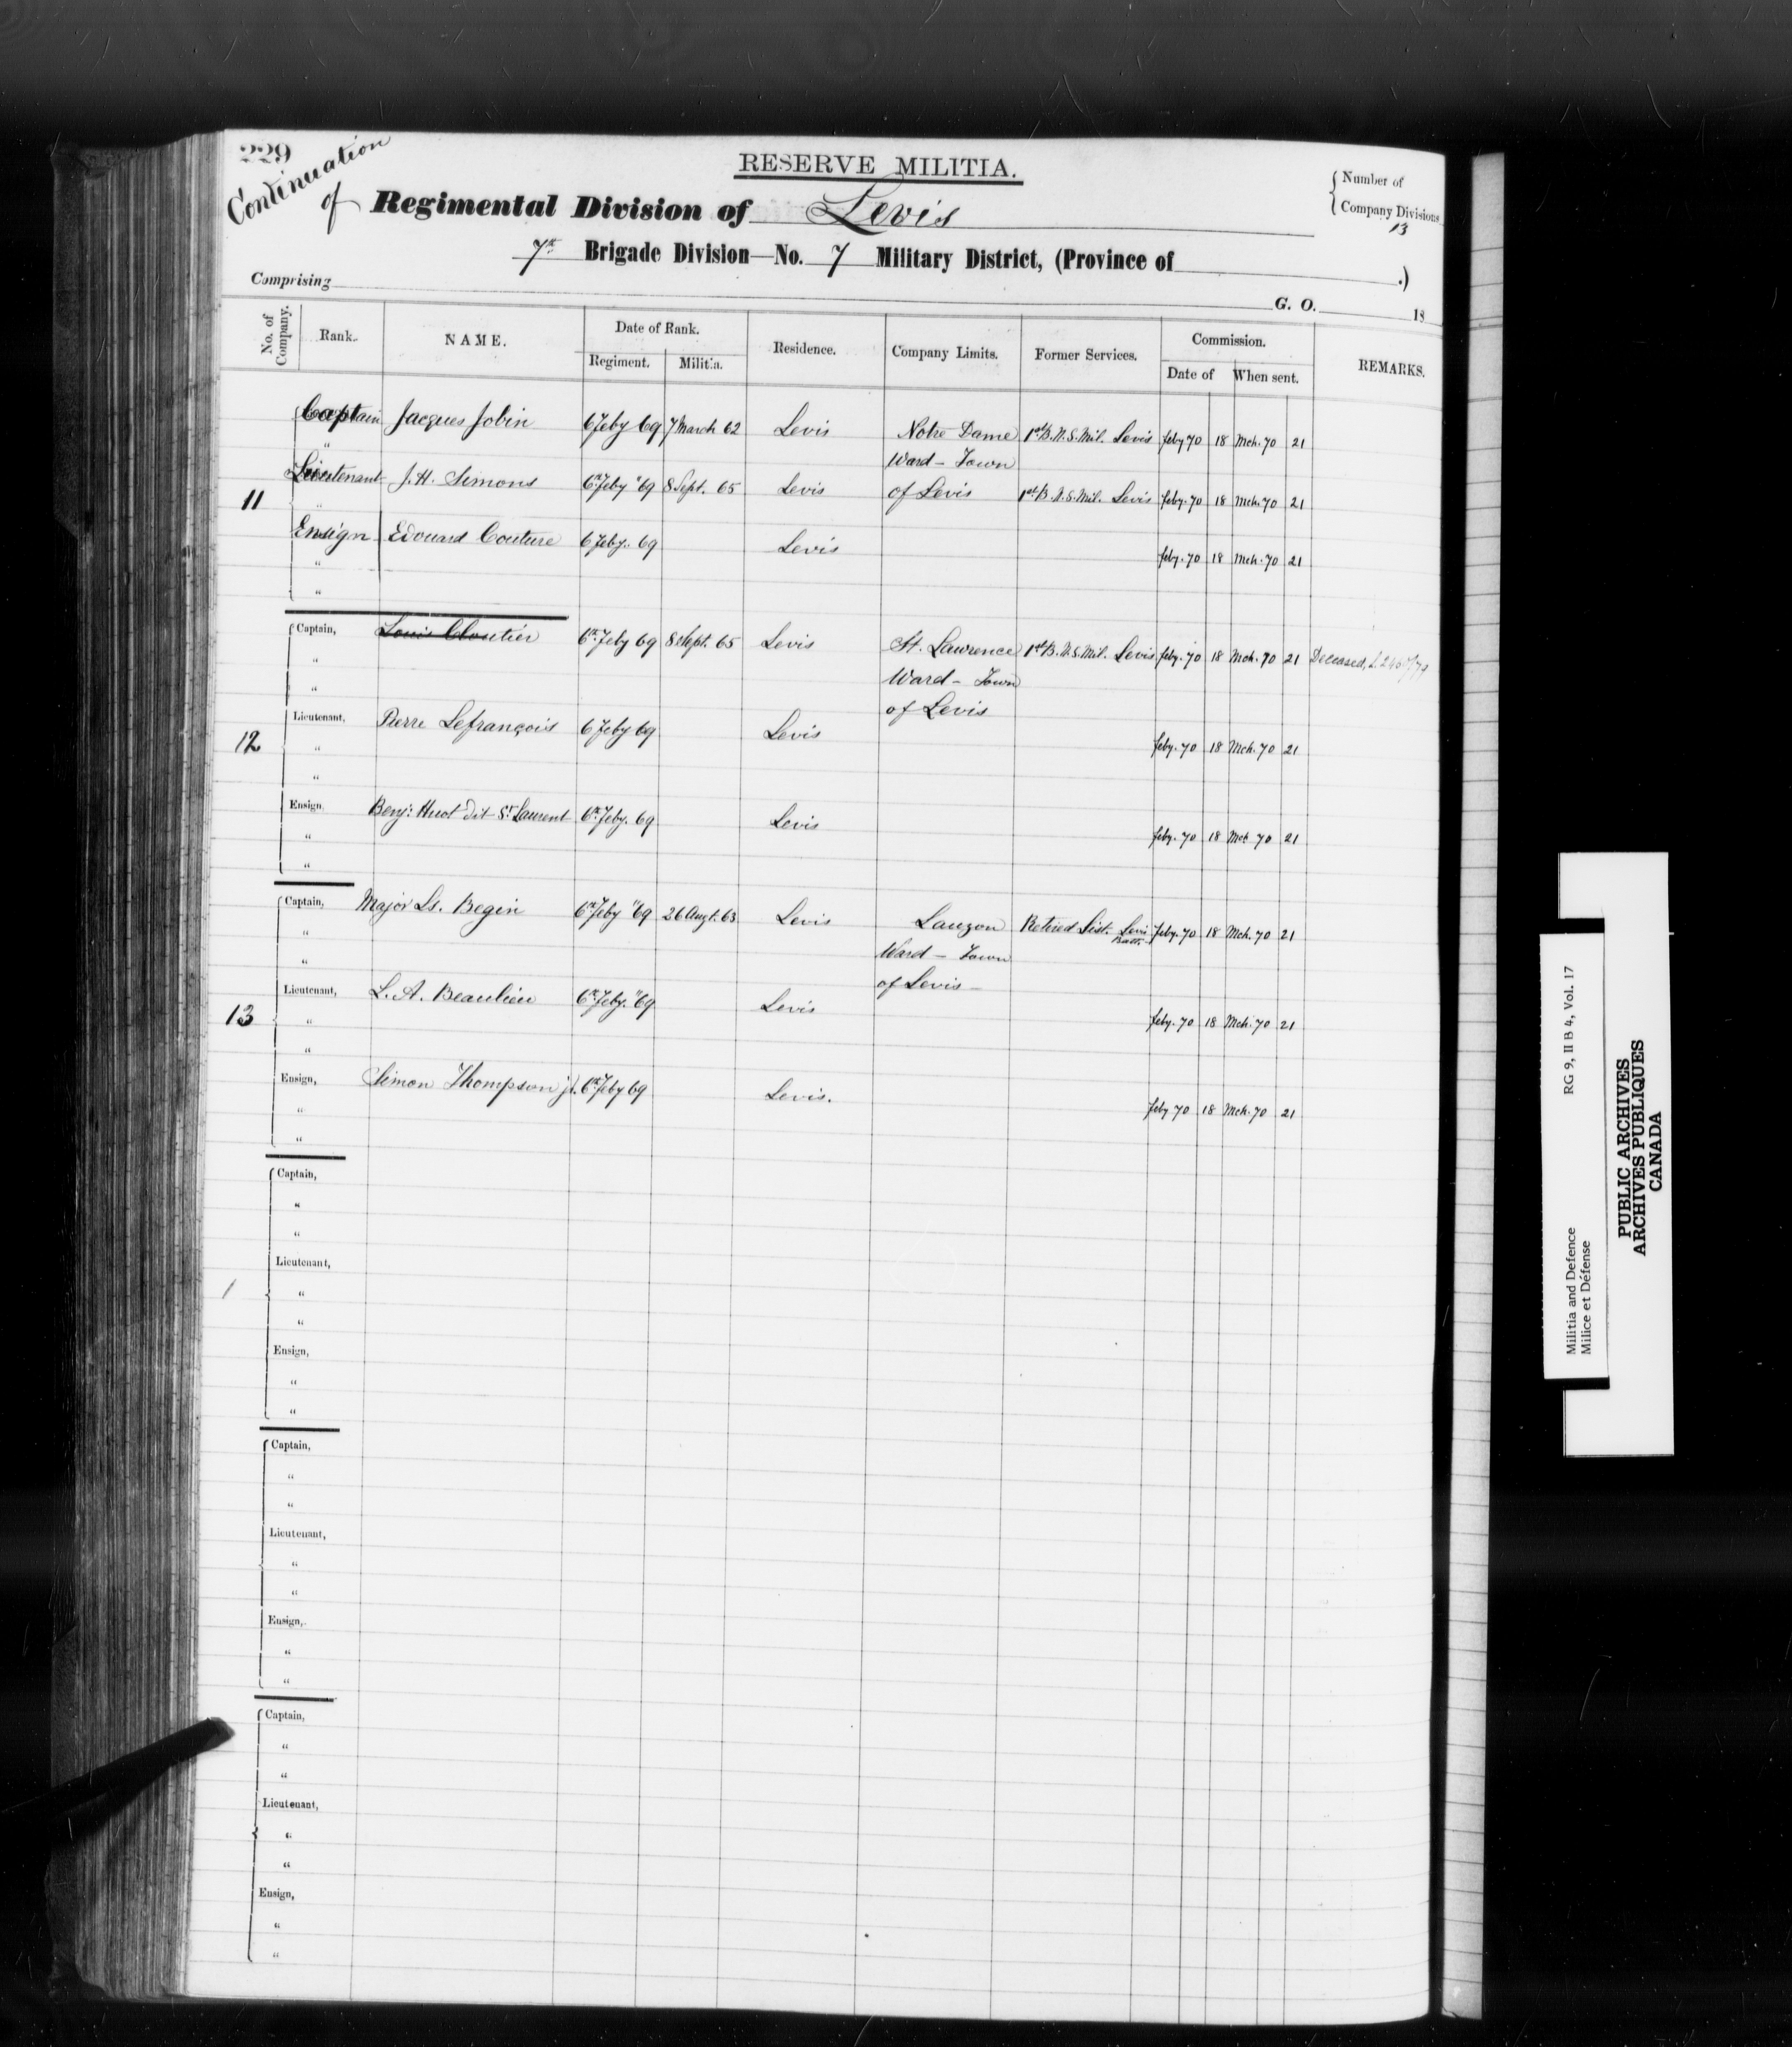 229
Continuation
of
RESERVE MILITIA.
Regimental Division of Levis
Number of
Company Divisions
13
7th Brigade Division—No. 7 Military District, (Province of .)
Comprising
G. O. 18
No. of Company. Rank. NAME. Date of Rank. Residence. Company Limits. Former Services. Commission. REMARKS.
Regiment. Militia. Date of When sent.
Captain Jacques Jobin 6 Feby 69 7 March 62 Levis Notre Dame 1st B. N. S. Mil. Levis feby 70 18 Mch. 70 21
" Ward - Town
11 Lieutenant J. H. Simons 6th Feby "69 8 Sept. 65 Levis of Levis 1st B. N. S. Mil. Levis feby. 70 18 Mch. 70 21
"
Ensign Edouard Couture 6 Feby. 69 Levis feby. 70 18 Mch. 70 21
"
"
Captain, Louis Cloutier 6th Feby 69 8 Sept. 65 Levis St. Lawrence 1st B. N. S. Mil. Levis feby. 70 18 Mch. 70 21 Deceased,
" Ward - Town
" of Levis
Lieutenant, Pierre Lefrançois 6 Feby 69 Levis feby. 70 18 Mch. 70 21
12 "
"
Ensign, Benj: Huot dit St Laurent 6th Feby. 69 Levis feby. 70 18 Mch 70 21
"
"
Captain, Major Ls. Begin 6th Feby "69 26 Augt. 63 Levis Lauzon Retired List. Levis Batt. feby. 70 18 Mch. 70 21
" Ward - Town
" of Levis -
Lieutenant, L. A. Beaulieu 6th Feby. "69 Levis feby. 70 18 Mch. 70 21
13 "
"
Ensign, Simon Thompson jr. 6th Feby 69 Levis. feby 70 18 Mch. 70 21
"
"
Captain,
"
"
Lieutenant,
"
"
Ensign,
"
"
Captain,
"
"
Lieutenant,
"
"
Ensign,
"
"
Captain,
"
"
Lieutenant,
"
"
Ensign,
"
"
Militia and Defence RG 9, II B 4, Vol. 17
Milice et Défense
PUBLIC ARCHIVES
ARCHIVES PUBLIQUES
CANADA